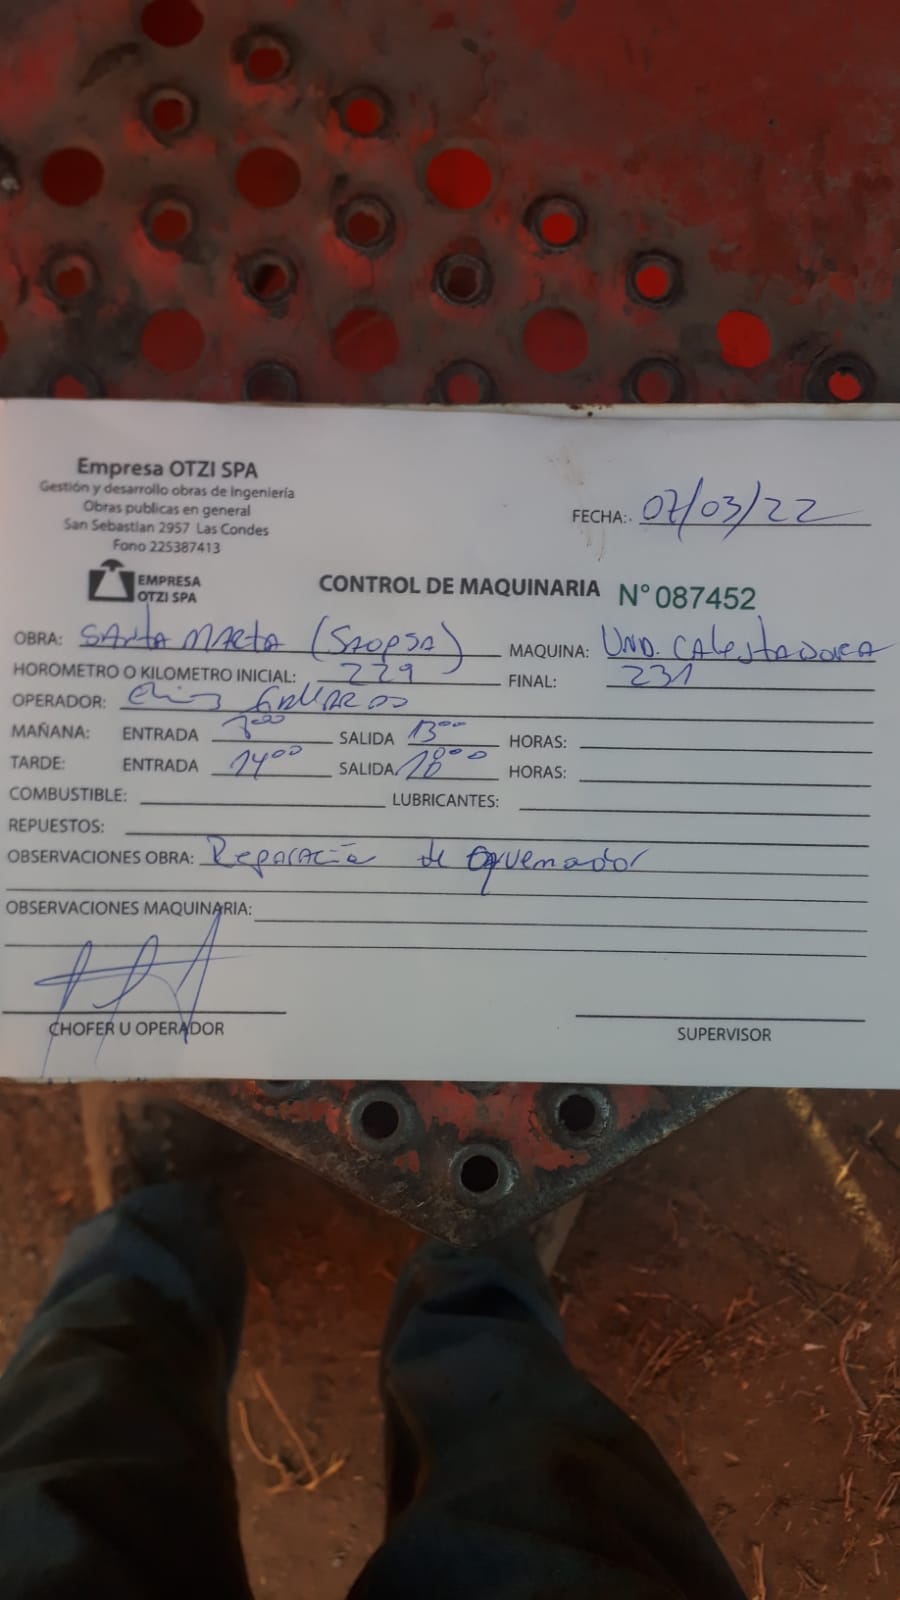 Empresa OTZI SPA
Gestión y desarrollo obras de Ingeniería
Obras publicas en general
San Sebastian 2957 Las Condes
Fono 225387413
EMPRESA
OTZI SPA
FECHA: 07/03/22
CONTROL DE MAQUINARIA N° 087452
OBRA: SANTA MARTA (SACOPSA) MAQUINA: UND. CALEFACTORA
HOROMETRO O KILOMETRO INICIAL: 229 FINAL: 231
OPERADOR:
MAÑANA: ENTRADA SALIDA 13⁰⁰ HORAS:
TARDE: ENTRADA 14⁰⁰ SALIDA 18⁰⁰ HORAS:
COMBUSTIBLE: LUBRICANTES:
REPUESTOS:
OBSERVACIONES OBRA: Reparación de quemador
OBSERVACIONES MAQUINARIA:
CHOFER U OPERADOR
SUPERVISOR